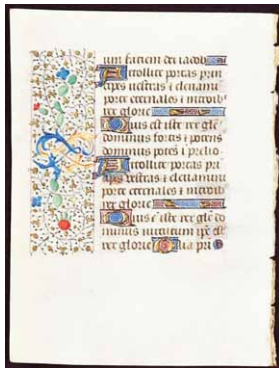 um faciem dei iacob
Attollite portas prin
cipes vestras et elevamini
porte eternales et introibit
rex glorie
Quis est iste rex glorie
dominus fortis et potens
dominus potens in prelio
Attollite portas prin
cipes vestras et elevamini
porte eternales et introibit
rex glorie
Quis est iste rex glorie do
minus virtutum ipse est
rex glorie Gloria patri